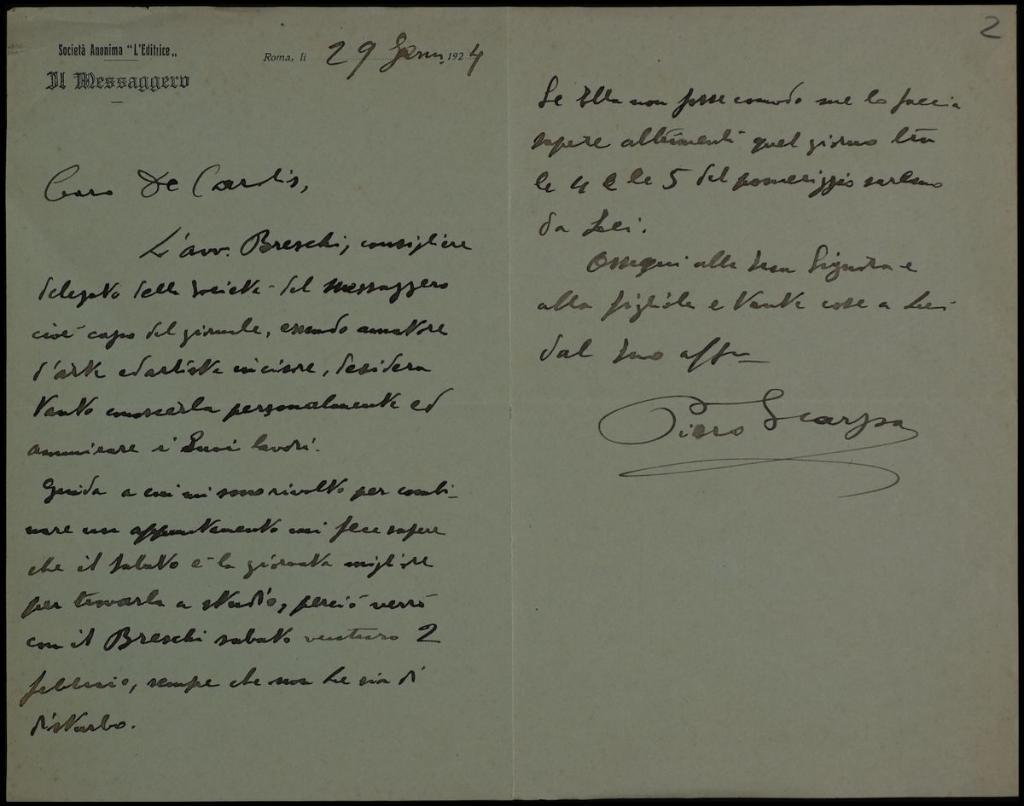 Società Anonima "L'Editrice"
Il Messaggero
Roma, li 29 Genn. 1924
Caro De Carolis,
L'avv. Breschi, consigliere
delegato della Società del Messaggero
cioè capo del giornale, essendo amatore
d'arte ed artista incisore, desidera
tanto conoscerla personalmente ed
ammirare i Suoi lavori.
Guida a cui mi sono rivolto per combi-
nare un appuntamento mi fece sapere
che il sabato è la giornata migliore
per trovarla a studio, perciò verrò
con il Breschi sabato venturo 2
febbraio, sempre che non Le sia di
disturbo.
2
Se Ella non fosse comodo me lo faccia
sapere altrimenti quel giorno tra
le 4 e le 5 del pomeriggio saremo
da Lei.
Ossequi alla Sua Signora e
alla figliola e tante cose a Lei
dal Suo affmo
Piero Scarpa